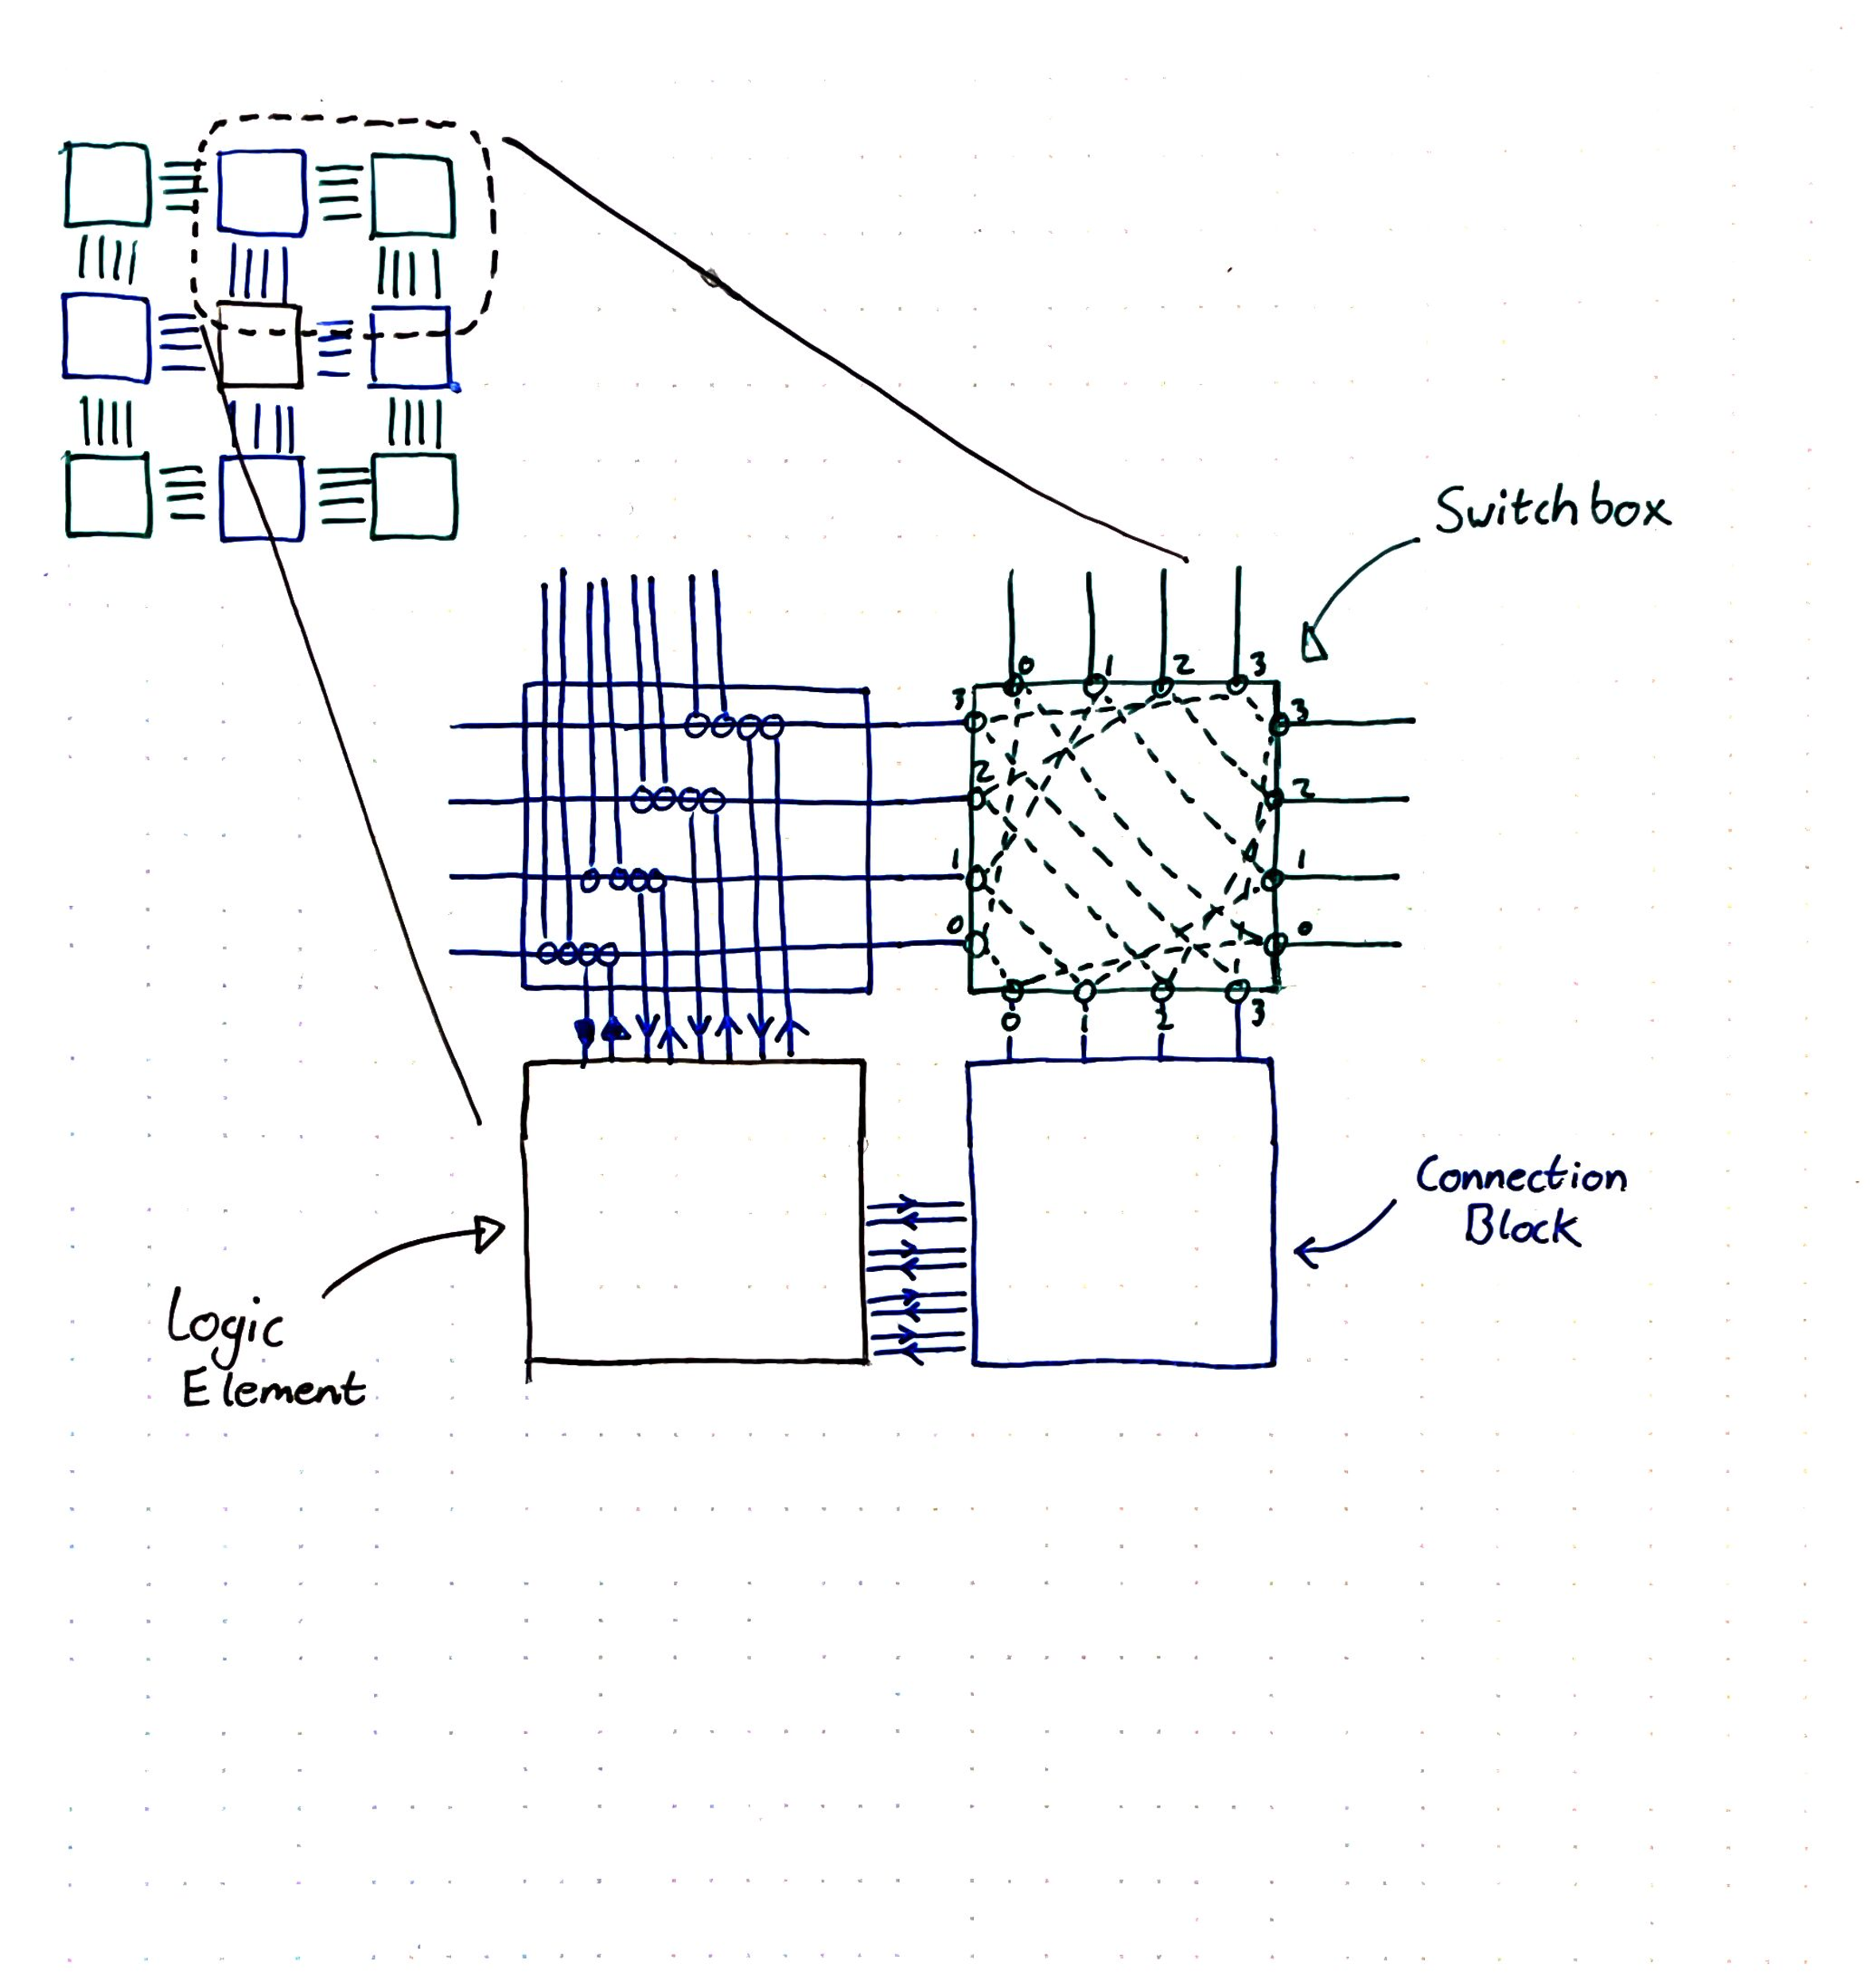 Switchbox
0 1 2 3
3 3
2 2
1 1
0 0
0 1 2 3
Connection
Block
Logic
Element